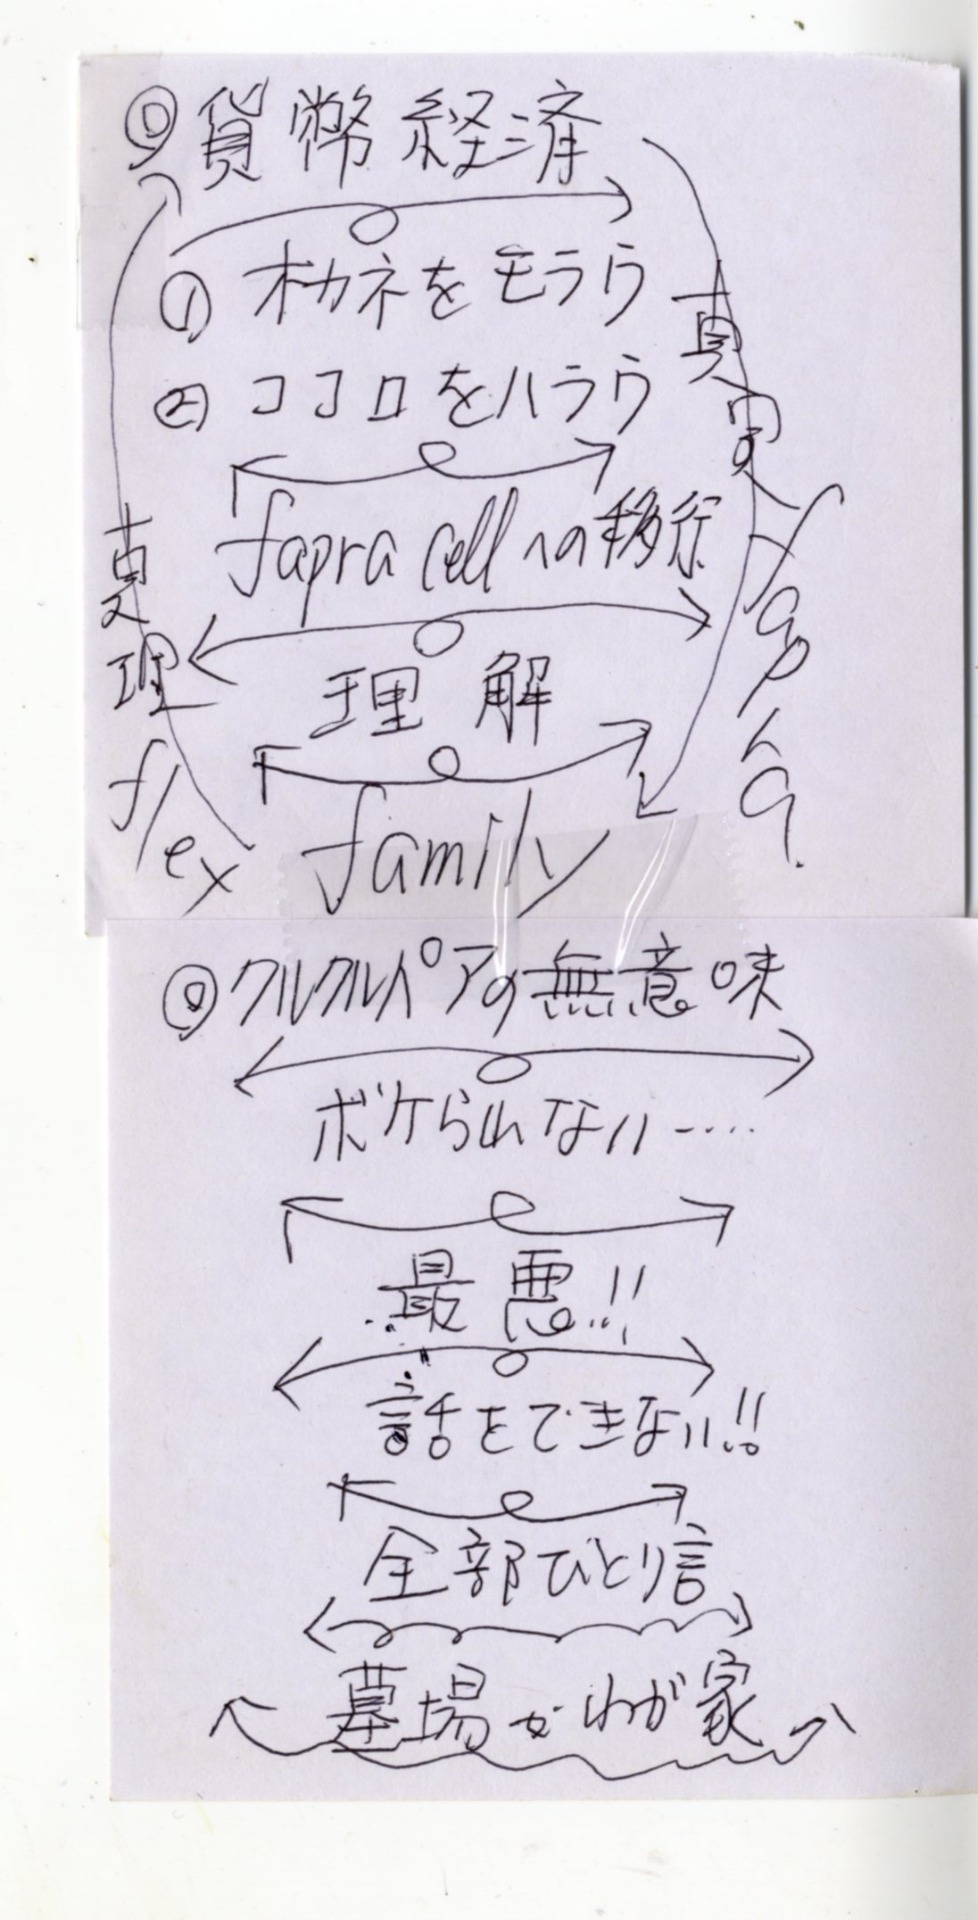 ◎貨幣経済
① オカネをモラウ
② ココロをハラウ
fapra cellへの移行
理解
family
真実 fapra
真理 flex
◎クルクルパアの無意味
ボケられない……
最悪!!
話をできない!!
全部ひとり言
墓場がわが家